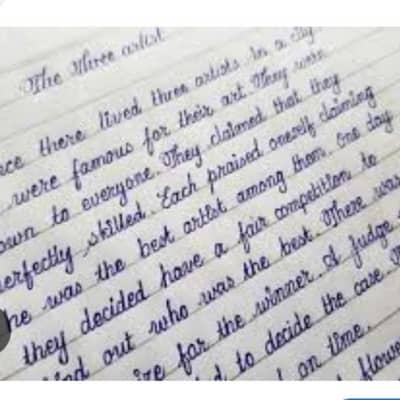 The three artist
there lived three artists in a city
were famous for their art. They were
to everyone. They claimed that they
perfectly skilled. Each praised oneself claiming
he was the best artist among them. One day
they decided have a fair competition to
out who was the best. There was
for the winner. A judge
to decide the case.
on time.